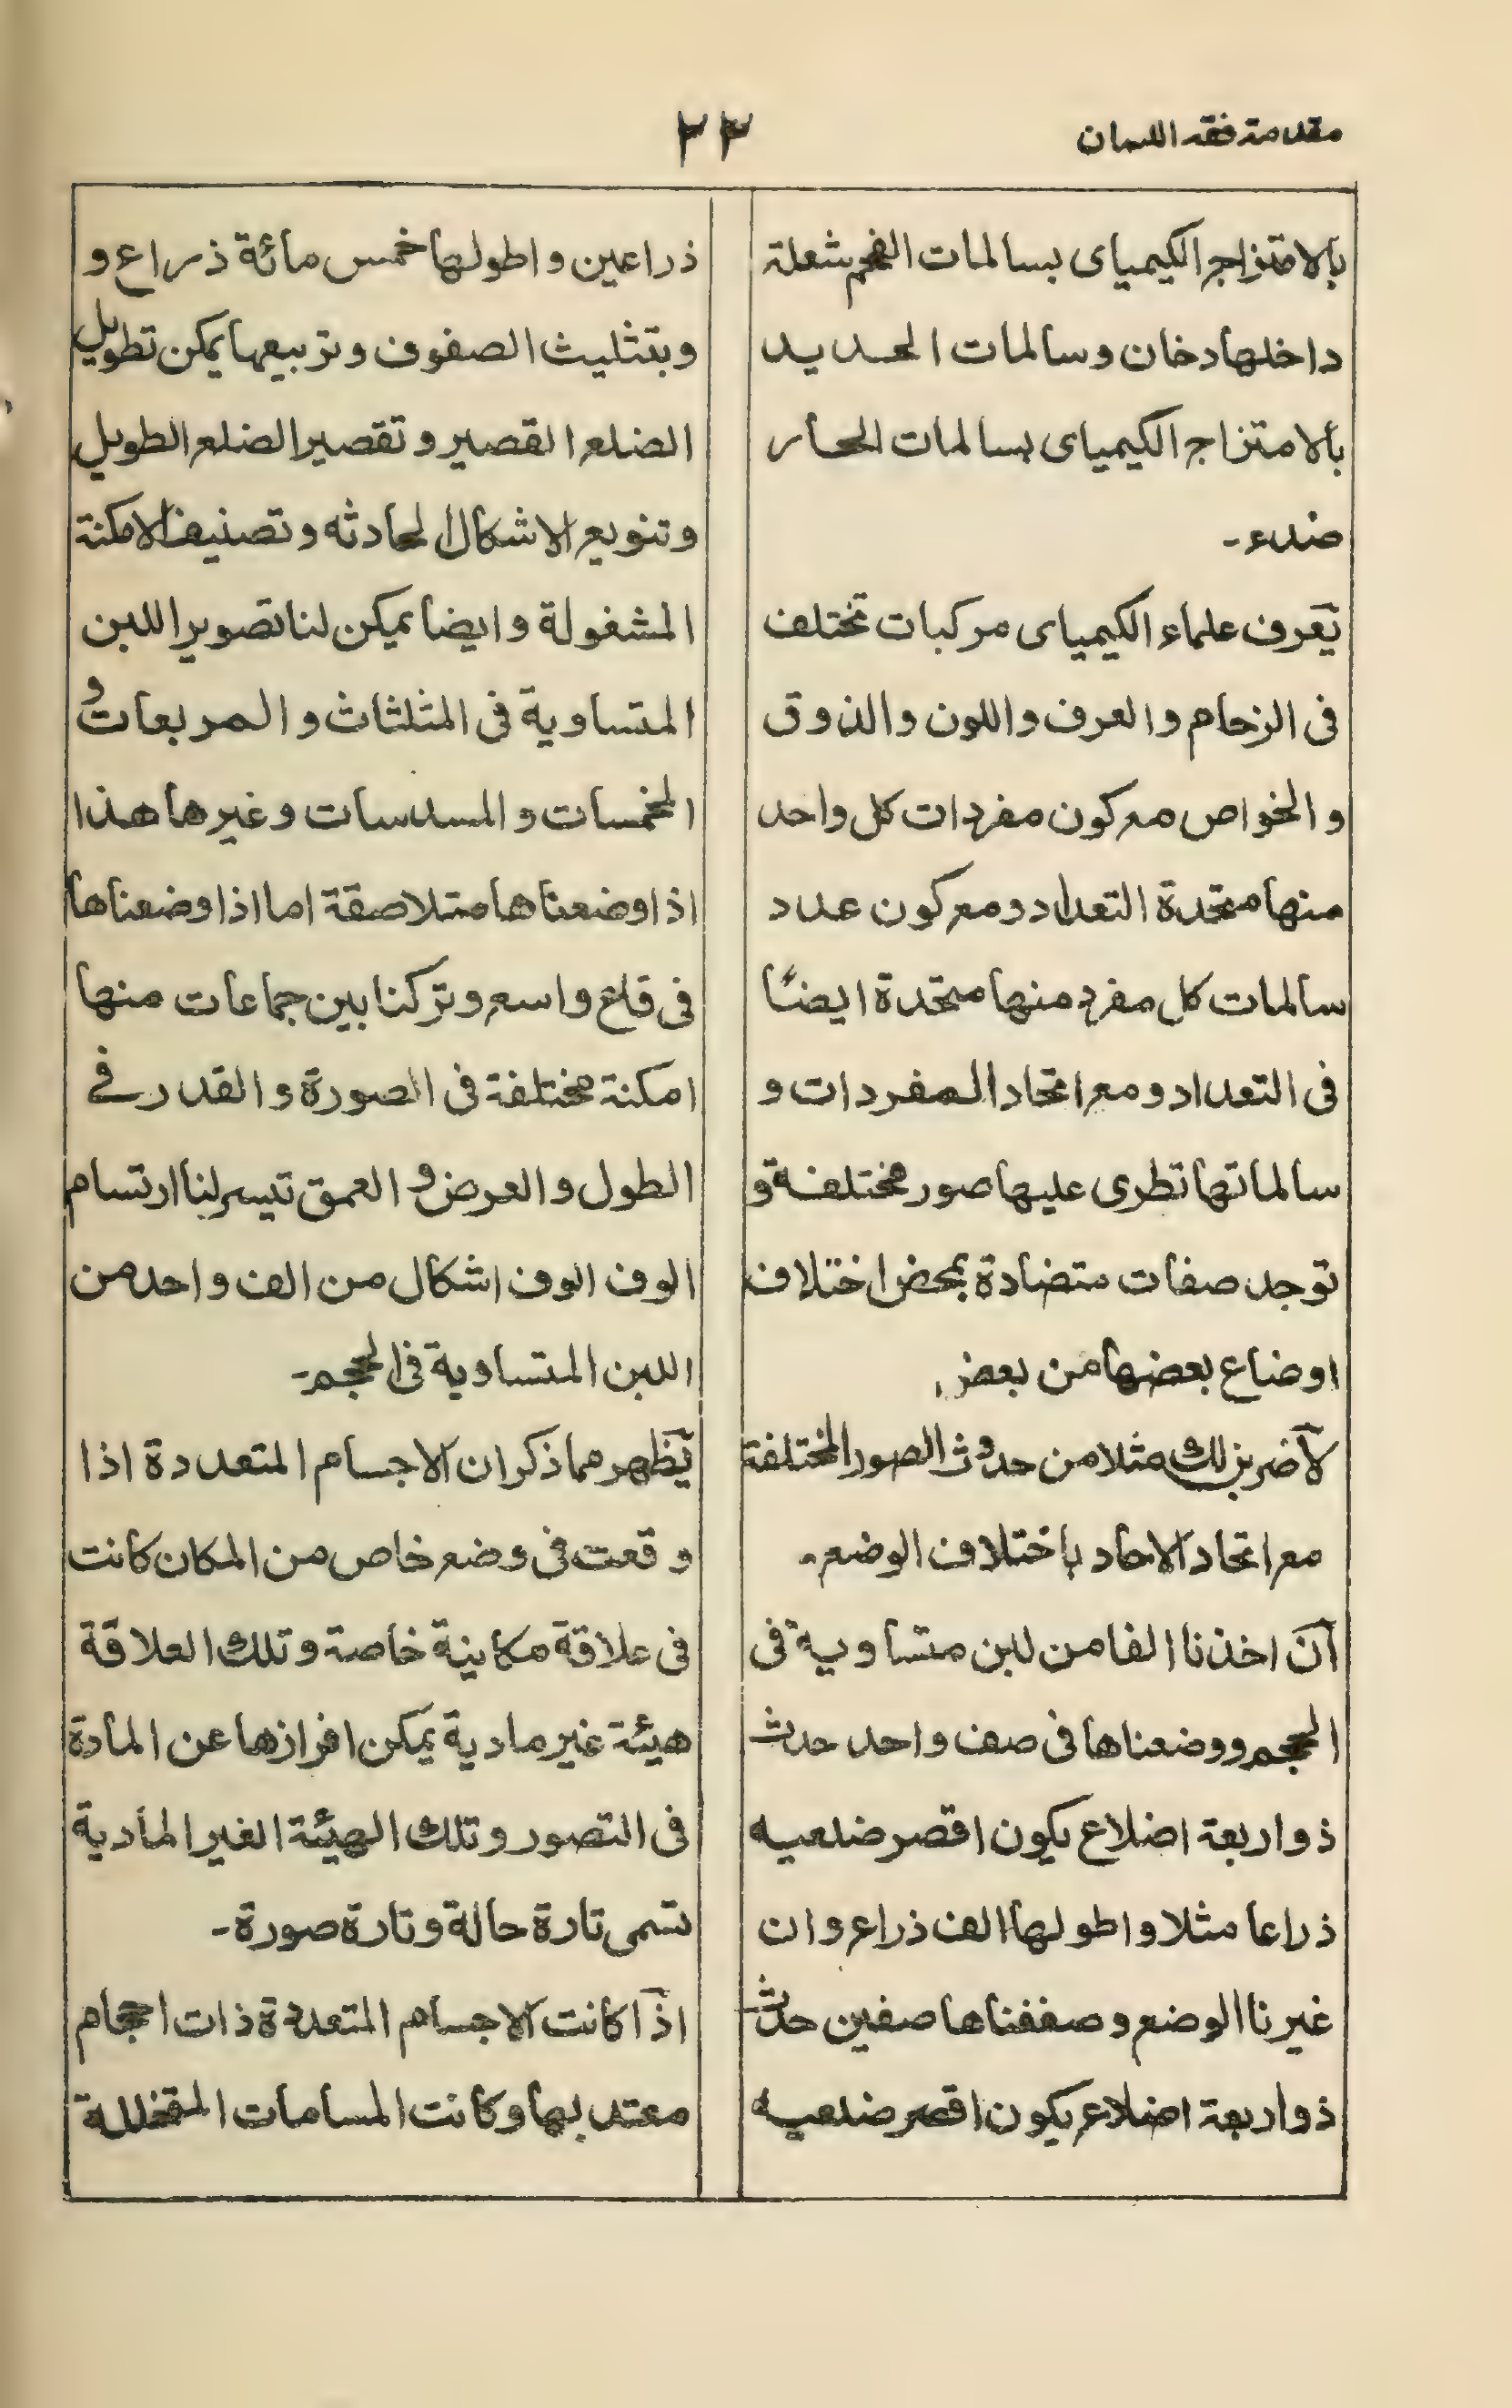 مقدمة فقه اللسان
٢٣
بالامتزاج الكيمياى بسالمات الفحم شعلة
داخلها دخان وسالمات الحديد
بالامتزاج الكيمياى بسالمات الحار
صدء۔
يعرف علماء الكيمياى مركبات تختلف
فى الزحام والعرف واللون والذوق
والخواص مع كون مفردات كل واحد
منها متحدة التعداد ومع كون عدد
سالمات كل مفرد منها متحدة ايضًا
فى التعداد ومع اتحاد المفردات و
سالماتها تطرى عليها صور مختلفة و
توجد صفات متضادة بمحض اختلاف
اوضاع بعضها من بعض
لاضرب لك مثلا من حدوث الصور المختلفة
مع اتحاد الاحاد باختلاف الوضع۔
ان اخذنا الفا من لبن متساوية فى
الحجم ووضعناها فى صف واحد حدث
ذو اربعة اضلاع يكون اقصر ضلعيه
ذراعا مثلا واطولها الف ذراع وان
غيرنا الوضع وصففناها صفين حدث
ذو اربعة اضلاع يكون اقصر ضلعيه
ذراعين واطولها خمس مائة ذراع و
وبتثليث الصفوف وتربيعها يمكن تطويل
الضلع القصير وتقصير الضلع الطويل
وتنويع الاشكال الحادثه وتصنيف الامكنة
المشغولة وايضا يمكن لنا تصوير اللبن
المتساوية فى المثلثات والمربعات و
المخمسات والمسدسات وغيرها هذا
اذا وضعناها متلاصقة اما اذا وضعناها
فى قاع واسع وتركنا بين جماعات منها
امكنة مختلفة فى الصورة والقدر فے
الطول والعرض و العمق تيسر لنا ارتسام
الوف الوف اشكال من الف واحد من
اللبن المتساوية فى الحجم۔
يظهر مما ذكر ان الاجسام المتعددة اذا
وقعت فى وضع خاص من المكان كانت
فى علاقة مكانية خاصة وتلك العلاقة
هيئة غير مادية يمكن افرازها عن المادة
فى التصور وتلك الهيئة الغير المادية
تسمى تارة حالة وتارة صورة۔
اذا كانت الاجسام المتعددة ذات احجام
معتد بها وكانت المسامات المتخللة